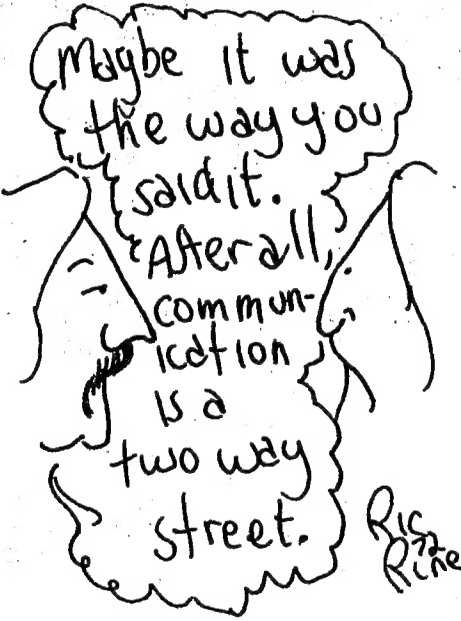 Maybe it was
the way you
said it.
After all,
commun-
ication
is a
two way
street.
Ric
Rine